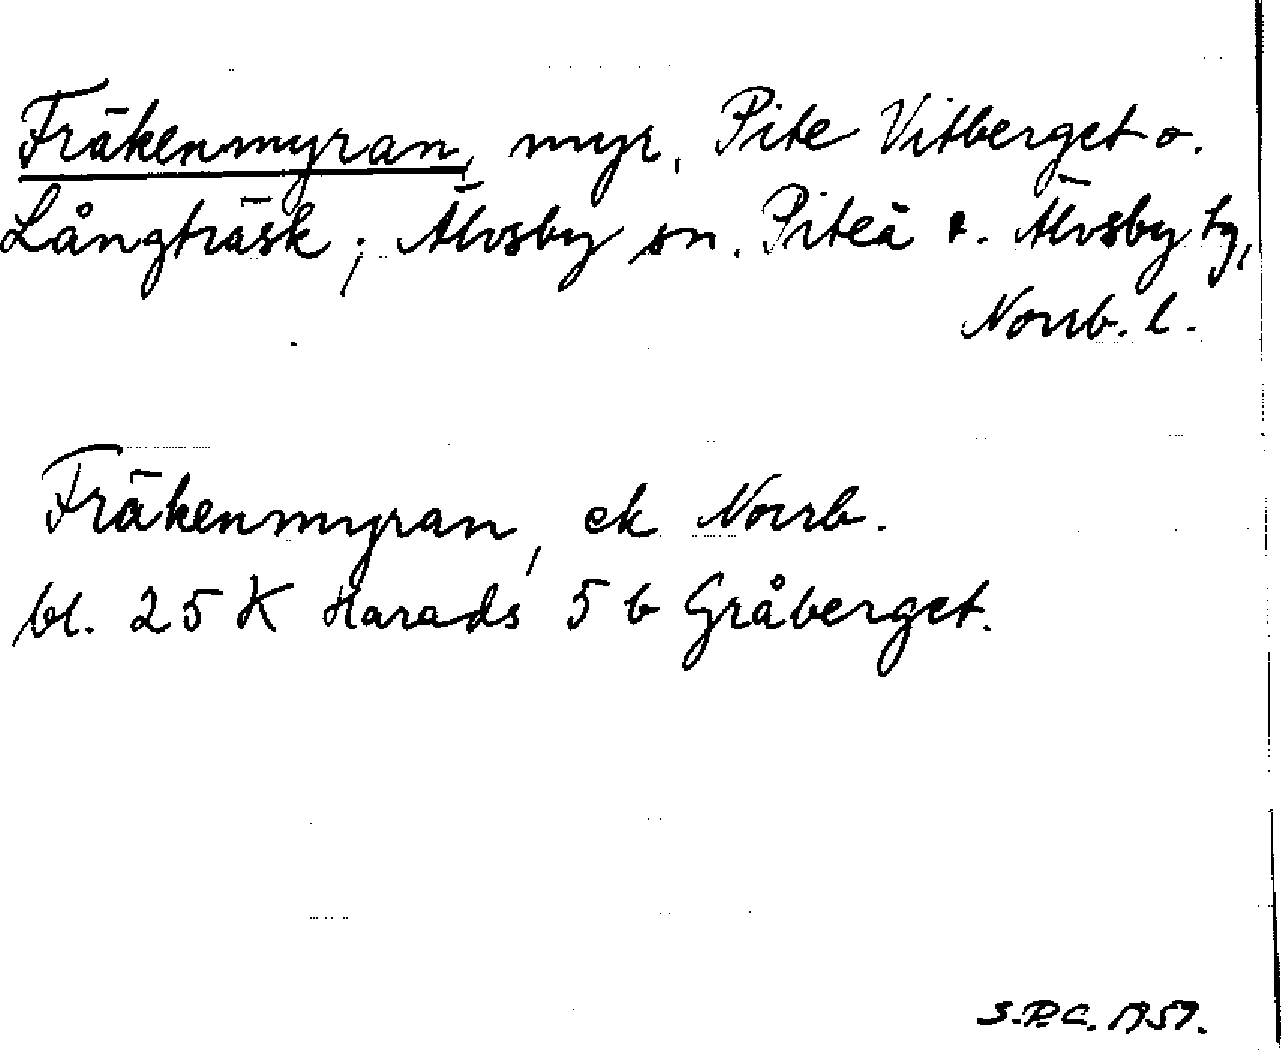 Fräkenmyran, myr, Pite Vitberget o.
Långträsk, Älvsby sn. Piteå o. Älvsby tg,
Norrb. l.
Fräkenmyran, ek Norrb.
bl. 25 K Harads 5 b Gråberget.
S.P.C. 1957.